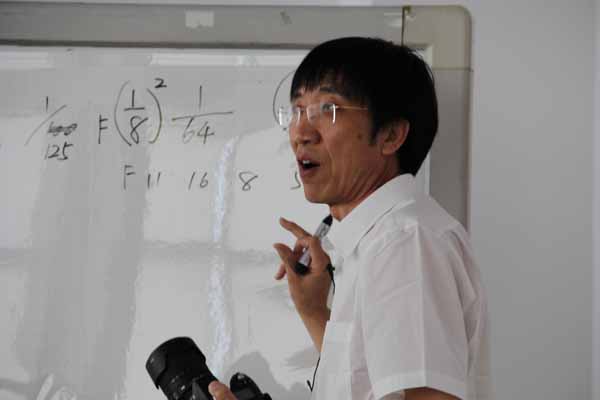 1/125 F(1/8)² 1/64
F 11 16 8 5